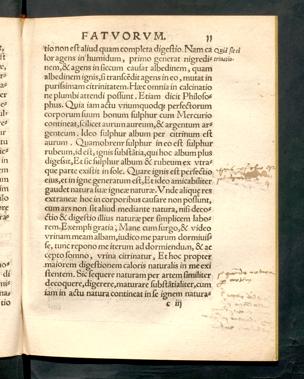 FATVORVM. 33
tio non est aliud quam completa digestio. Nam ca
lor agens in humidum, primo generat nigredi
nem, & agens in siccum causat albedinem, quam
albedinem ignis, si transcēdit agens in eo, mutat in
purissimam citrinitatem. Hæc omnia in calcinatio
ne plumbi attendi possunt. Etiam dicit Philoso
phus. Quia iam actu vtriumq; perfectorum
corporum suum bonum sulphur cum Mercurio
contineat, scilicet aurum aureum, & argentum ar
genteum. Ideo sulphur album per citrinum est
aurum. Quamobrem sulphur in eo est sulphur
rubeum, id est, ignis substātia, qui hoc album plus
digessit, Et sic sulphur album & rubeum ex vtra
que parte existit in sole. Quare ignis est perfectio
eius, et in igne generatum est, Et ideo amicabiliter
gaudet natura suæ igneæ naturæ. Vnde alique res
extraneæ hoc in corporibus causare non possunt,
cum ars non sit aliud mediante natura, nisi deco
ctio & digestio illius naturæ per simplicem labo
rem. Exempli gratia, Mane cum surgo, & video
vrinam meam album, iudico me parum dormiuis
se, tunc repono me iterum ad dormiendum, & ac
cepto somno, vrina citrinatur, Et hoc propter
maiorem digestionem caloris naturalis in me exi
stentem. Sic te quere naturam per artem similiter
decoquere, digerere, maturare substātialiter, cum
iam in actu natura contineat in se ignem natura
c iij